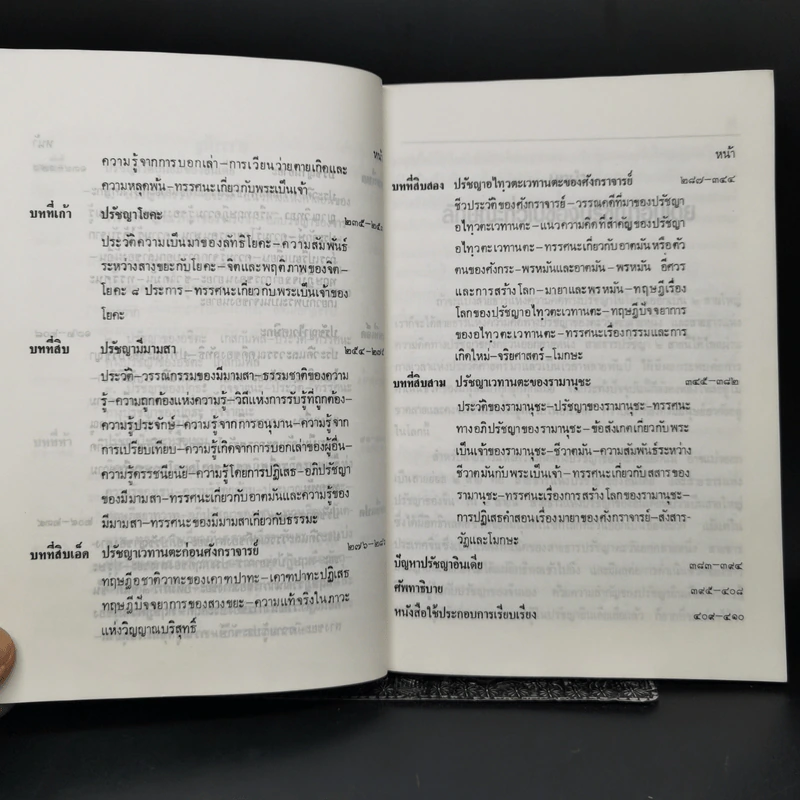 หน้า
ความรู้จากการบอกเล่า–การเวียนว่ายตายเกิดและ
ความหลุดพ้น–ทรรศนะเกี่ยวกับพระเป็นเจ้า
บทที่เก้า ปรัชญาโยคะ ๒๓๕–๒๕
ประวัติความเป็นมาของลัทธิโยคะ–ความสัมพันธ์
ระหว่างสางขยะกับโยคะ–จิตและพฤติภาพของจิต–
โยคะ ๘ ประการ–ทรรศนะเกี่ยวกับพระเป็นเจ้าของ
โยคะ
บทที่สิบ ปรัชญามีมามสา ๒๕๔–๒๗
ประวัติ–วรรณกรรมของมีมามสา–ธรรมชาติของความ
รู้–ความถูกต้องแห่งความรู้–วิถีแห่งการรับรู้ที่ถูกต้อง–
ความรู้ประจักษ์–ความรู้จากการอนุมาน–ความรู้จาก
การเปรียบเทียบ–ความรู้เกิดจากการบอกเล่าของผู้อื่น–
ความรู้ตรรชนียนัย–ความรู้โดยการปฏิเสธ–อภิปรัชญา
ของมีมามสา–ทรรศนะเกี่ยวกับอาตมันและความรู้ของ
มีมามสา–ทรรศนะของมีมามสาเกี่ยวกับธรรมะ
บทที่สิบเอ็ด ปรัชญาเวทานตะก่อนศังกราจารย์ ๒๗๖–๒๘
ทฤษฎีอชาติวาทะของเคาฑปาทะ–เคาฑปาทะปฏิเสธ
ทฤษฎีปัจจยาการของสางขยะ–ความแท้จริงในภาวะ
แห่งวิญญาณบริสุทธิ์
หน้า
บทที่สิบสอง ปรัชญาอไทฺวตะเวทานตะของศังกราจารย์ ๒๘๗–๓๔๔
ชีวประวัติของศังกราจารย์–วรรณคดีที่มาของปรัชญา
อไทฺวตะเวทานตะ–แนวความคิดที่สำคัญของปรัชญา
อไทฺวตะเวทานตะ–ทรรศนะเกี่ยวกับอาตมันหรือตัว
ตนของศังกระ–พรหมันและอาตมัน–พรหมัน อีศวร
และการสร้างโลก–มายาและพรหมัน–ทฤษฎีเรื่อง
โลกของปรัชญาอไทฺวตะเวทานตะ–ทฤษฎีปัจจยาการ
ของอไทฺวตะเวทานตะ–ทรรศนะเรื่องกรรมและการ
เกิดใหม่–จริยศาสตร์–โมกษะ
บทที่สิบสาม ปรัชญาเวทานตะของรามานุชะ ๓๔๕–๓๘๒
ประวัติของรามานุชะ–ปรัชญาของรามานุชะ–ทรรศนะ
ทางอภิปรัชญาของรามานุชะ–ข้อสังเกตเกี่ยวกับพระ
เป็นเจ้าของรามานุชะ–ชีวาตมัน–ความสัมพันธ์ระหว่าง
ชีวาตมันกับพระเป็นเจ้า–ทรรศนะเกี่ยวกับสสารของ
รามานุชะ–ทรรศนะเรื่องการสร้างโลกของรามานุชะ–
การปฏิเสธคำสอนเรื่องมายาของศังกราจารย์–สังสาร–
วัฏและโมกษะ
ปัญหาปรัชญาอินเดีย ๓๘๓–๓๙๔
ศัพทาธิบาย ๓๙๕–๔๐๘
หนังสือใช้ประกอบการเรียบเรียง ๔๐๙–๔๑๐